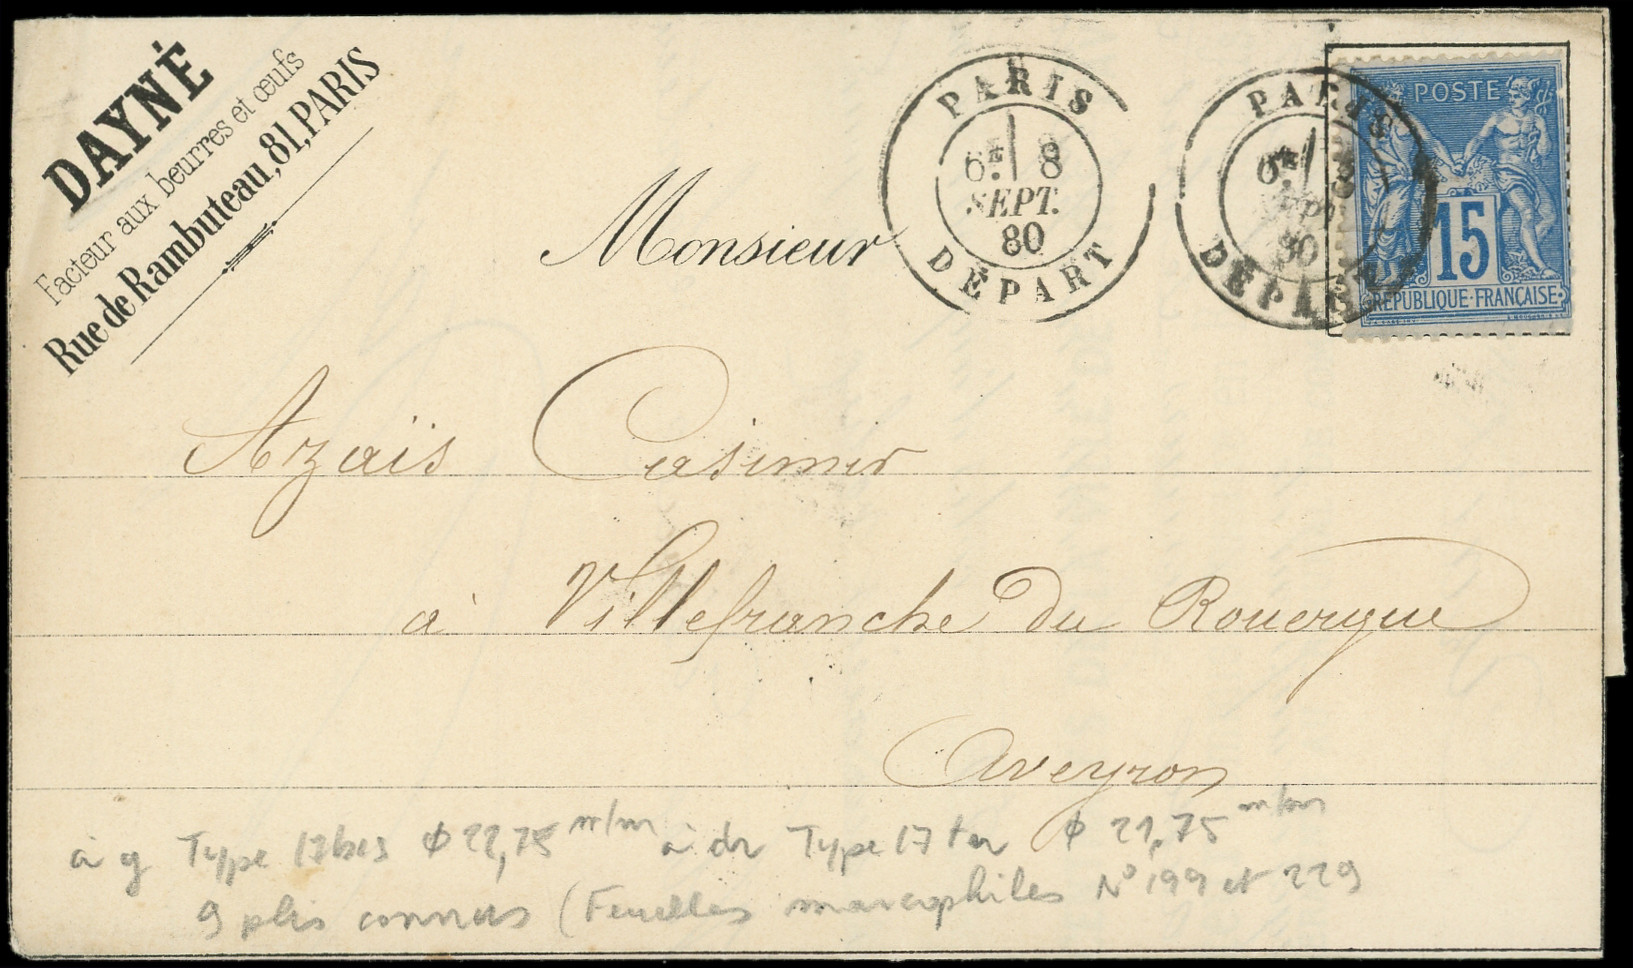 DAYNÉ
Facteur aux beurres et œufs
Rue de Rambuteau, 81, PARIS
PARIS
6E 8
SEPT.
80
DÉPART
PARIS
6E 8
SEPT.
80
DÉPART
POSTE
15
REPUBLIQUE·FRANÇAISE
Monsieur
Azaïs Casimir
à Villefranche du Rouergue
Aveyron
à g Type 17 bis ϕ 22,75 m/m à dr Type 17 ter ϕ 21,75 m/m
9 plis connus (Feuelles marcophiles N° 199 et 229